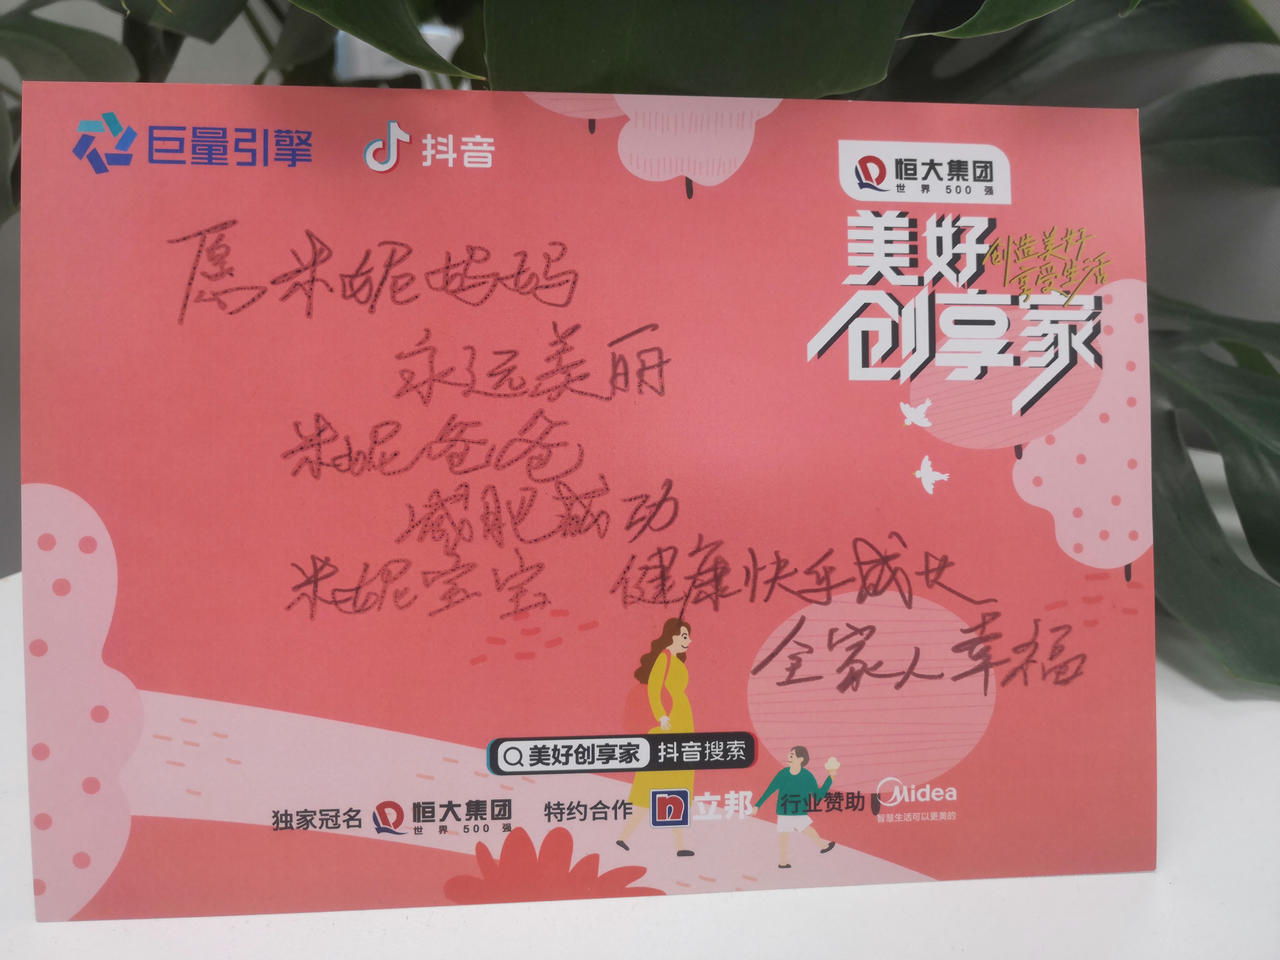 巨量引擎
抖音
恒大集团
世界500强
美好
创造美好
享受生活
创享家
愿米妮妈妈
永远美丽
米妮爸爸
减肥成功
米妮宝宝 健康快乐成长
全家人幸福
美好创享家 抖音搜索
独家冠名 恒大集团 特约合作 立邦 行业赞助 Midea
世界500强
智慧生活可以更美的